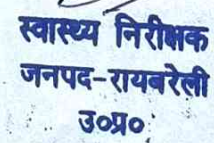 स्वास्थ्य निरीक्षक
जनपद-रायबरेली
उ०प्र०